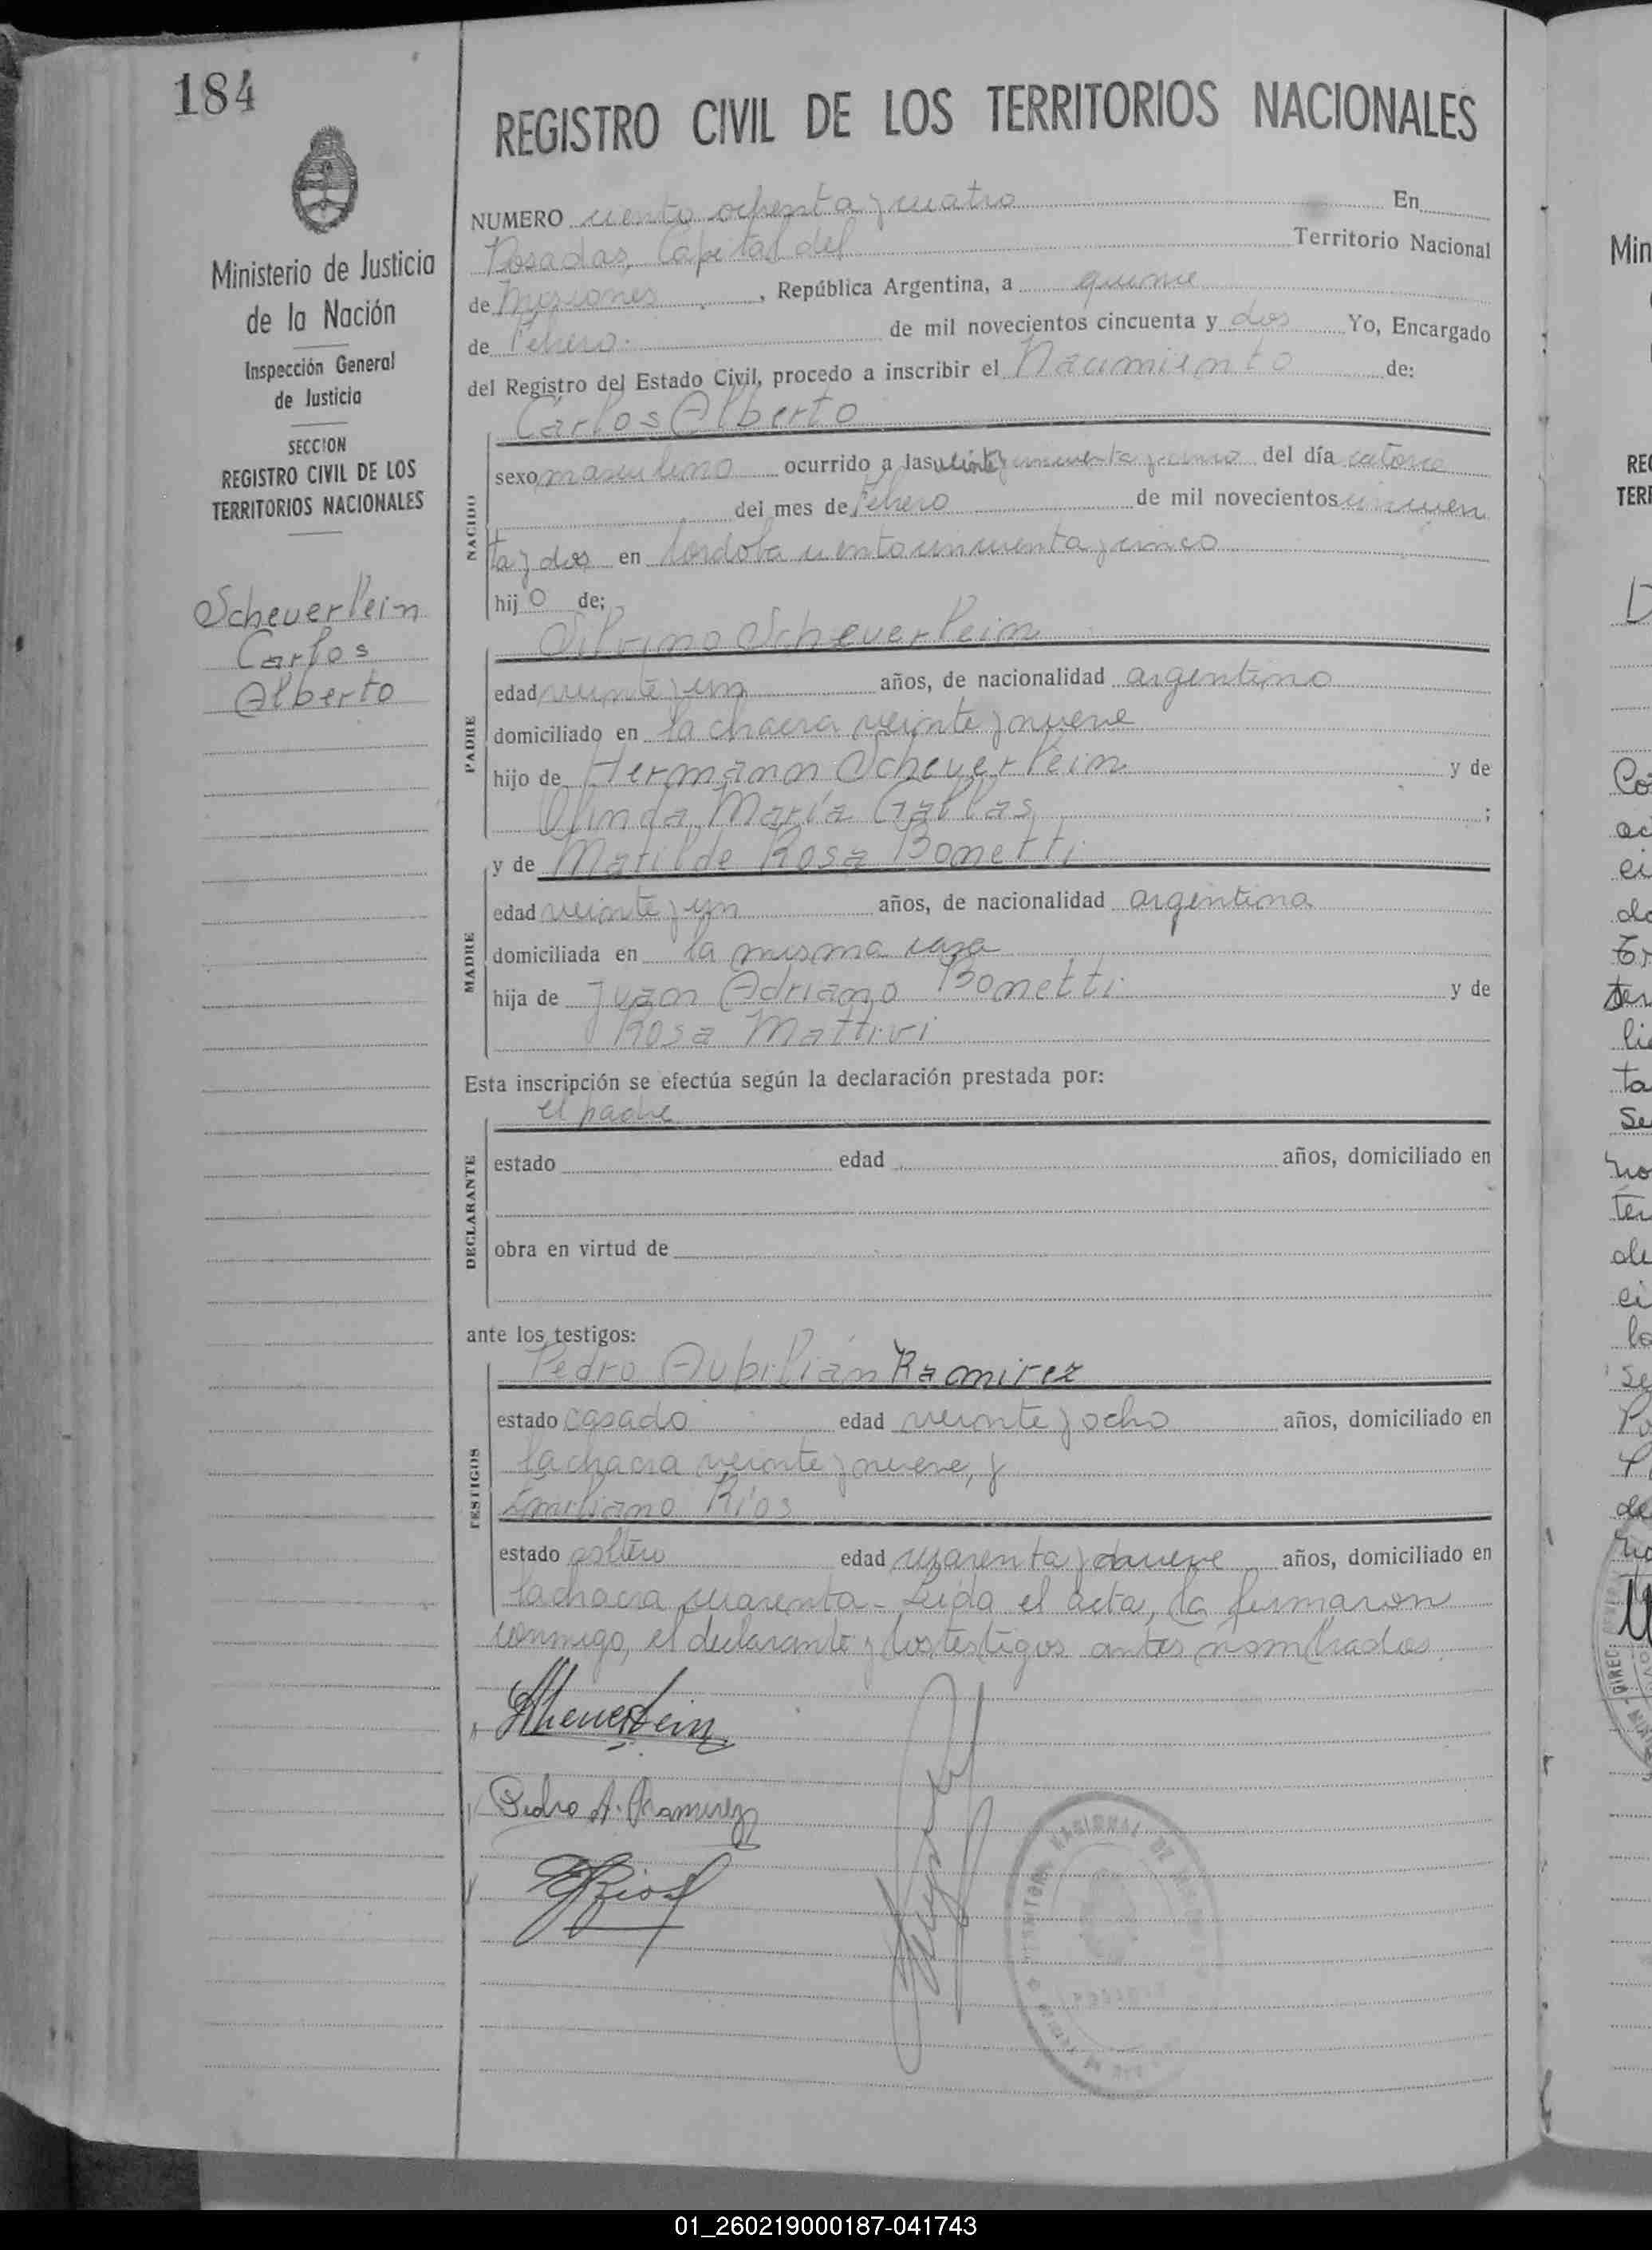 184
REGISTRO CIVIL DE LOS TERRITORIOS NACIONALES
Ministerio de Justicia
de la Nación
Inspección General
de Justicia
SECCION
REGISTRO CIVIL DE LOS
TERRITORIOS NACIONALES
Scheverlein
Carlos
Alberto
NUMERO ciento ochenta y cuatro En
Posadas, Capital del Territorio Nacional
de Misiones, República Argentina, a quince
de Febrero de mil novecientos cincuenta y dos Yo, Encargado
del Registro del Estado Civil, procedo a inscribir el Nacimiento de:
Carlos Alberto
NACIDO
sexo masculino ocurrido a las veinte y cincuenta y cinco del día catorce
del mes de Febrero de mil novecientos cincuen
ta y dos en Córdoba ciento cincuenta y cinco
hijo de:
Silvino Scheverlein
PADRE
edad veinte y un años, de nacionalidad argentino
domiciliado en la chacra veinte y nueve
hijo de Hermann Scheverlein y de
Olinda María Gallas;
y de Matilde Rosa Bonetti
MADRE
edad veinte y un años, de nacionalidad argentina
domiciliada en la misma casa
hija de Juan Adriano Bonetti y de
Rosa Mattivi
Esta inscripción se efectúa según la declaración prestada por:
el padre
DECLARANTE
estado edad años, domiciliado en
obra en virtud de
ante los testigos:
Pedro Ramirez
TESTIGOS
estado casado edad veinte y ocho años, domiciliado en
la chacra veinte y nueve, y
Emiliano Ríos
estado soltero edad cuarenta y nueve años, domiciliado en
la chacra cuarenta - Leída el acta, la firmaron
conmigo, el declarante y los testigos antes nombrados.
Scheverlein
Pedro A. Ramirez
E Rios
01_260219000187-041743